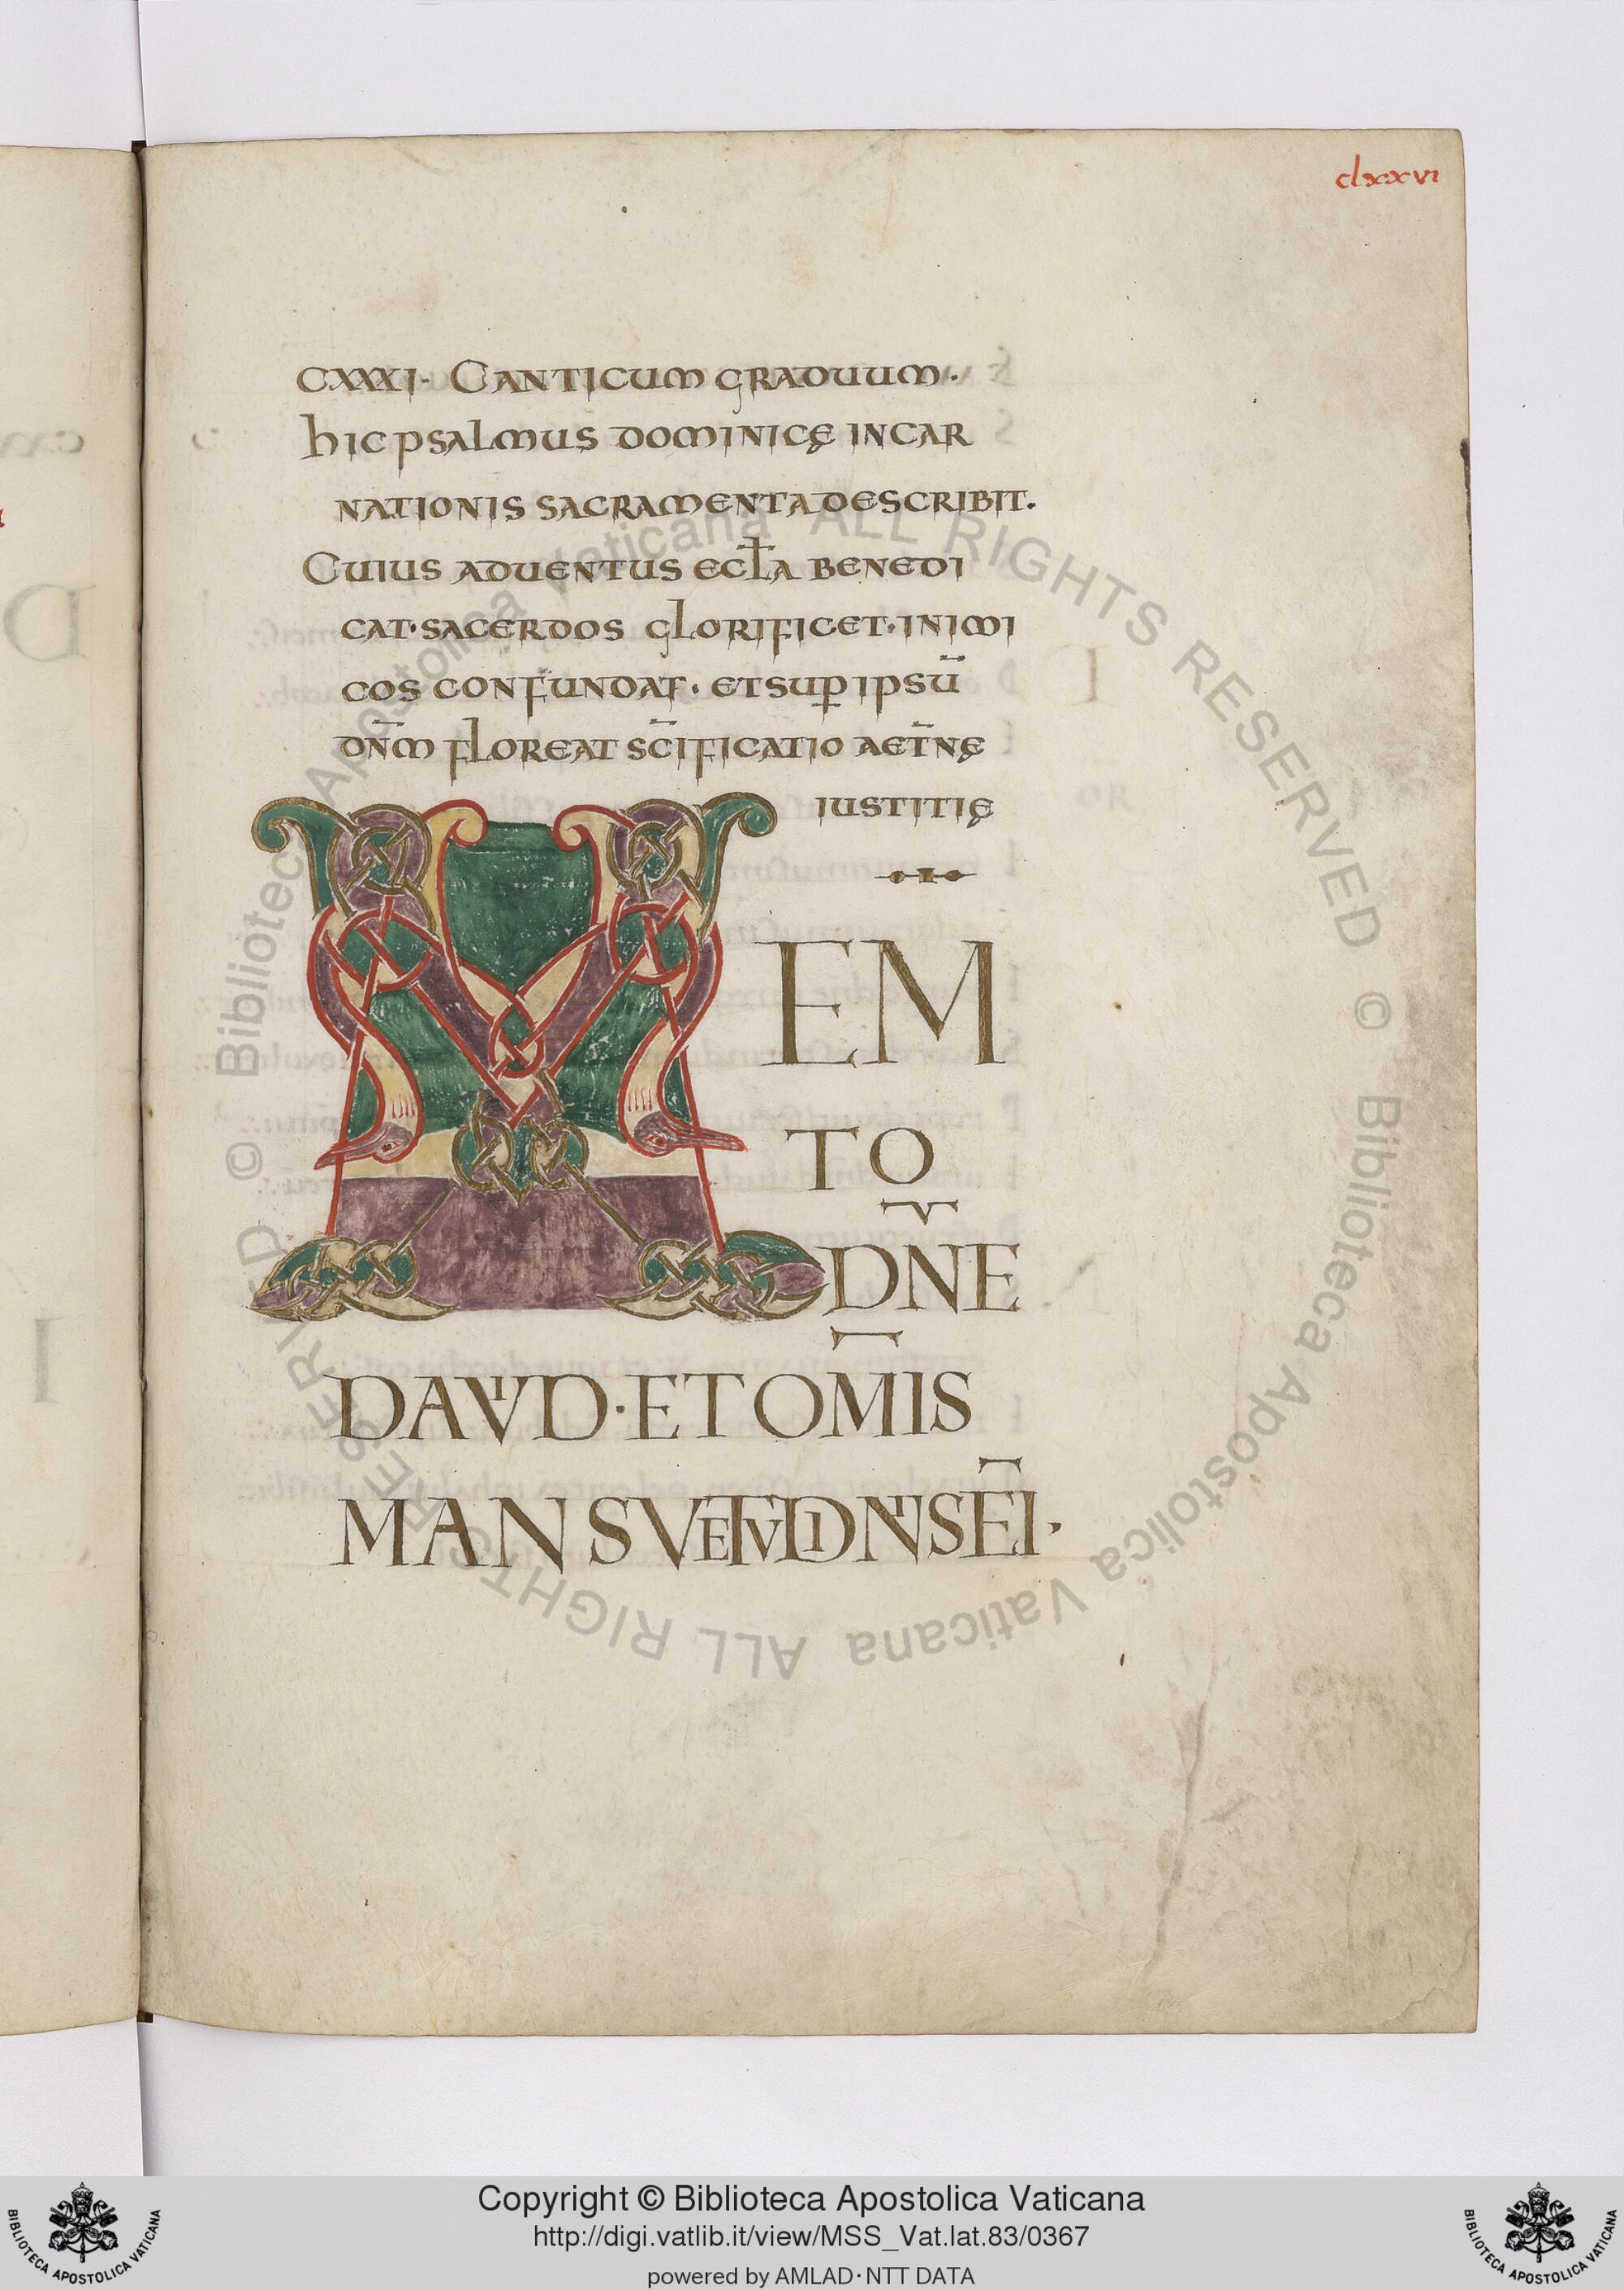 clxxvi
CXXXI· CANTICUM GRADUUM·
hIC PSALMUS DOMINICĘ INCAR
NATIONIS SACRAMENTA DESCRIBIT.
CUIUS ADUENTUS ECL̄A BENEDI
CAT· SACERDOS GLORIFICET· INIMI
COS CONFUNDAT· ET SUꝑ IPSŪ
DN̄M FLOREAT SC̄IFICATIO AET̄NĘ
IUSTITIĘ
M EM
TO
DN̄E
DAVID· ET OM̄IS
MANSVETVDINIS EĪ·
© Biblioteca Apostolica Vaticana ALL RIGHTS RESERVED © Biblioteca Apostolica Vaticana ALL RIGHTS RESERVED
Copyright © Biblioteca Apostolica Vaticana
http://digi.vatlib.it/view/MSS_Vat.lat.83/0367
powered by AMLAD·NTT DATA
BIBLIOTECA APOSTOLICA VATICANA
BIBLIOTECA APOSTOLICA VATICANA